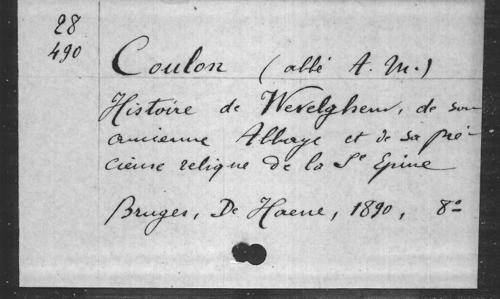 28
490
Coulon (abbé A. M.)
Histoire de Wevelghem, de son
ancienne Abbaye et de sa pré-
cieuse relique de la Ste Epine
Bruges, De Haene, 1890, 8°